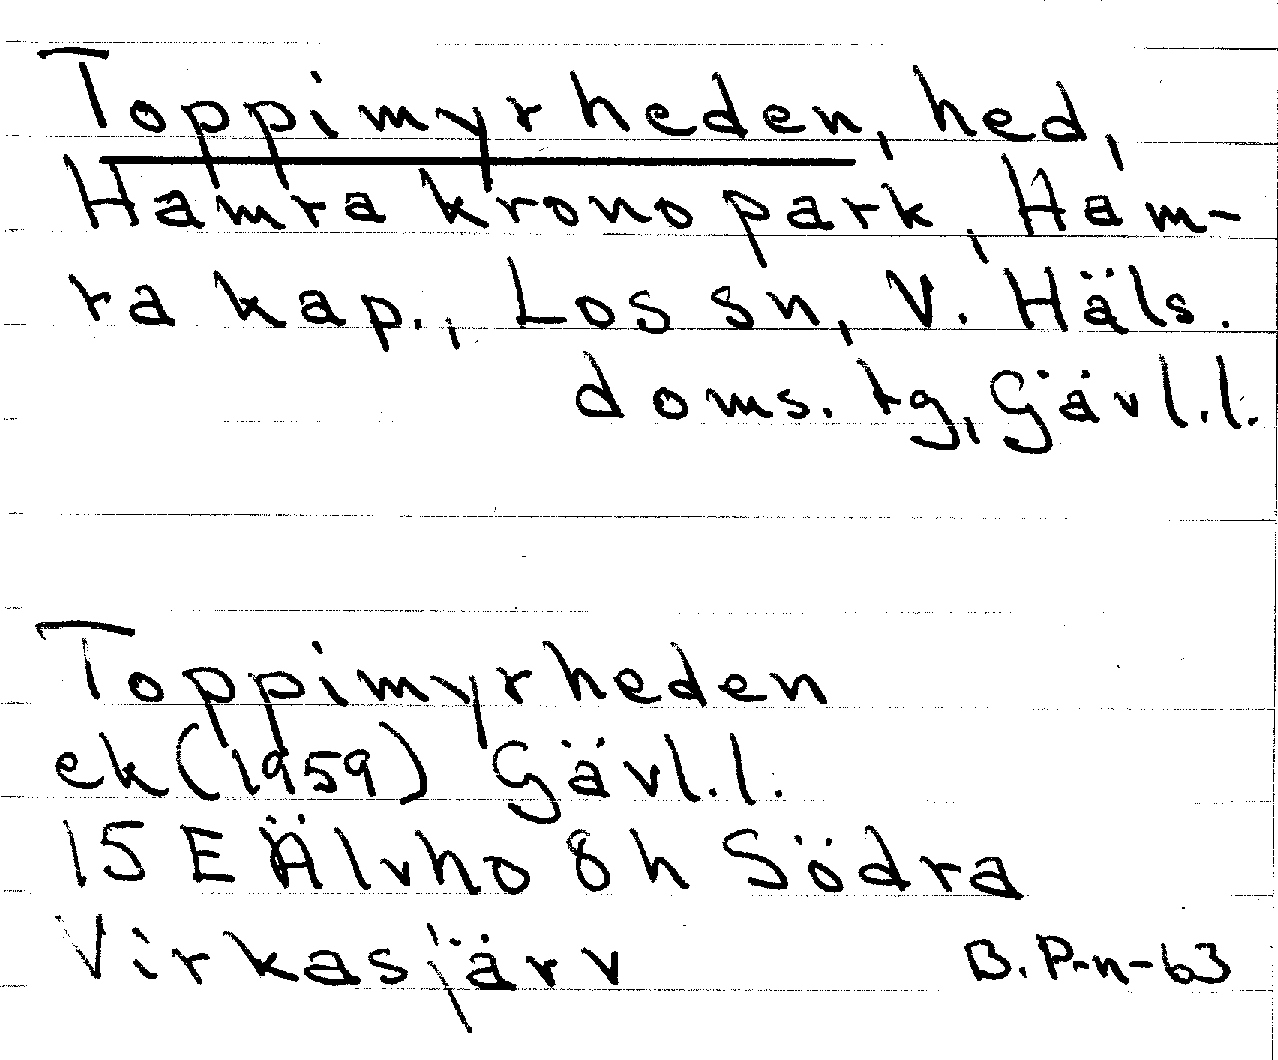 Toppimyrheden, hed,
Hamra kronopark, Ham-
ra kap., Los sn, V. Häls.
doms. tg, Gävl.l.
Toppimyrheden
ek (1959) Gävl.l.
15 E Älvho 8h Södra
Virkasjärv
B. P-n-63